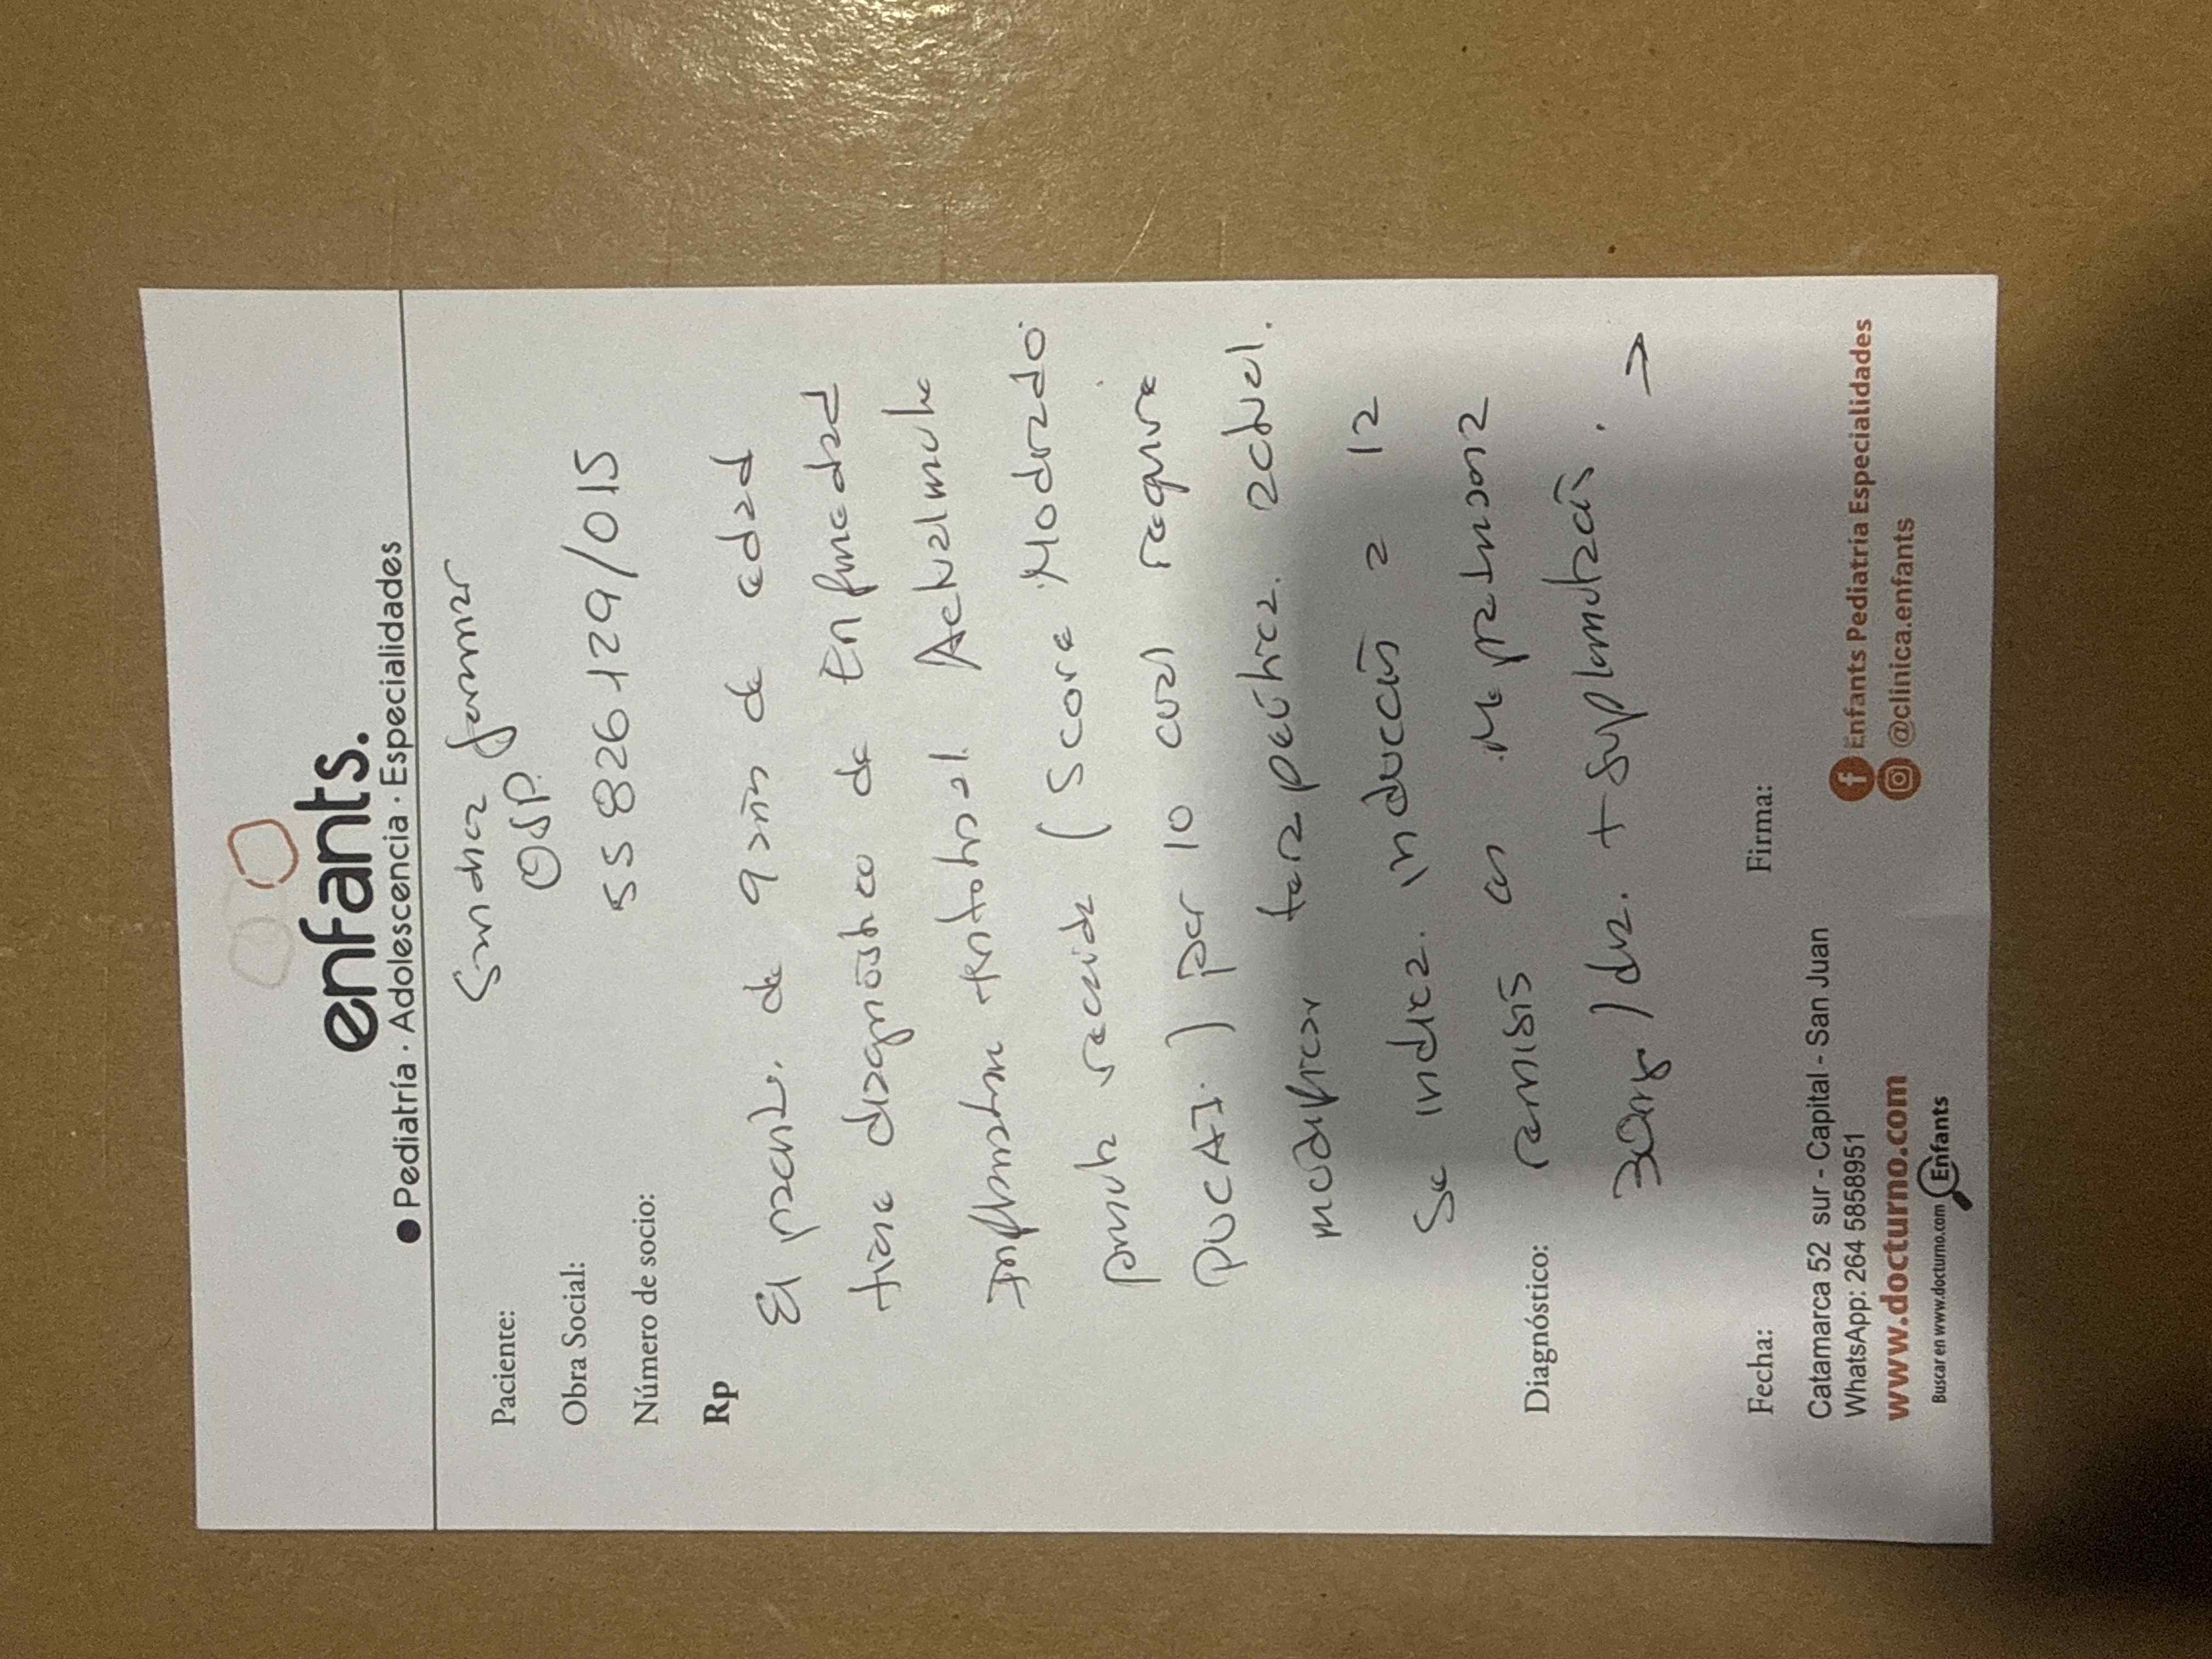 enfants.
● Pediatría · Adolescencia · Especialidades
Paciente: Sanchez
Obra Social: OSP.
Número de socio: 55826129/015
Rp
El paciente de 9 años de edad
tiene diagnóstico de Enfermedad
Inflamatoria intestinal. Actualmente
recaida (Score Moderado
PUCAI.) por lo cual requiere
modificar terapéutica actual.
Se indica inducción a la
remisión con Meprednisona
30mg/dia. + suplementación. →
Diagnóstico:
Fecha:
Firma:
Catamarca 52 sur - Capital - San Juan
WhatsApp: 264 5858951
www.docturno.com
Buscar en www.docturno.com Enfants
Enfants Pediatría Especialidades
@clinica.enfants